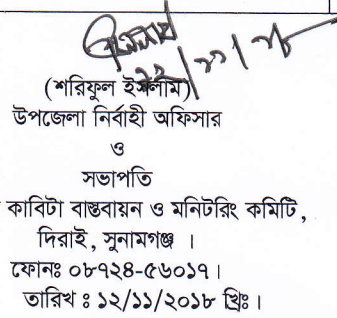 ১২/১১/১৮
(শরিফুল ইসলাম)
উপজেলা নির্বাহী অফিসার
ও
সভাপতি
কাবিটা বাস্তবায়ন ও মনিটরিং কমিটি,
দিরাই, সুনামগঞ্জ ।
ফোনঃ ০৮৭২৪-৫৬০১৭।
তারিখ ঃ ১২/১১/২০১৮ খ্রিঃ।